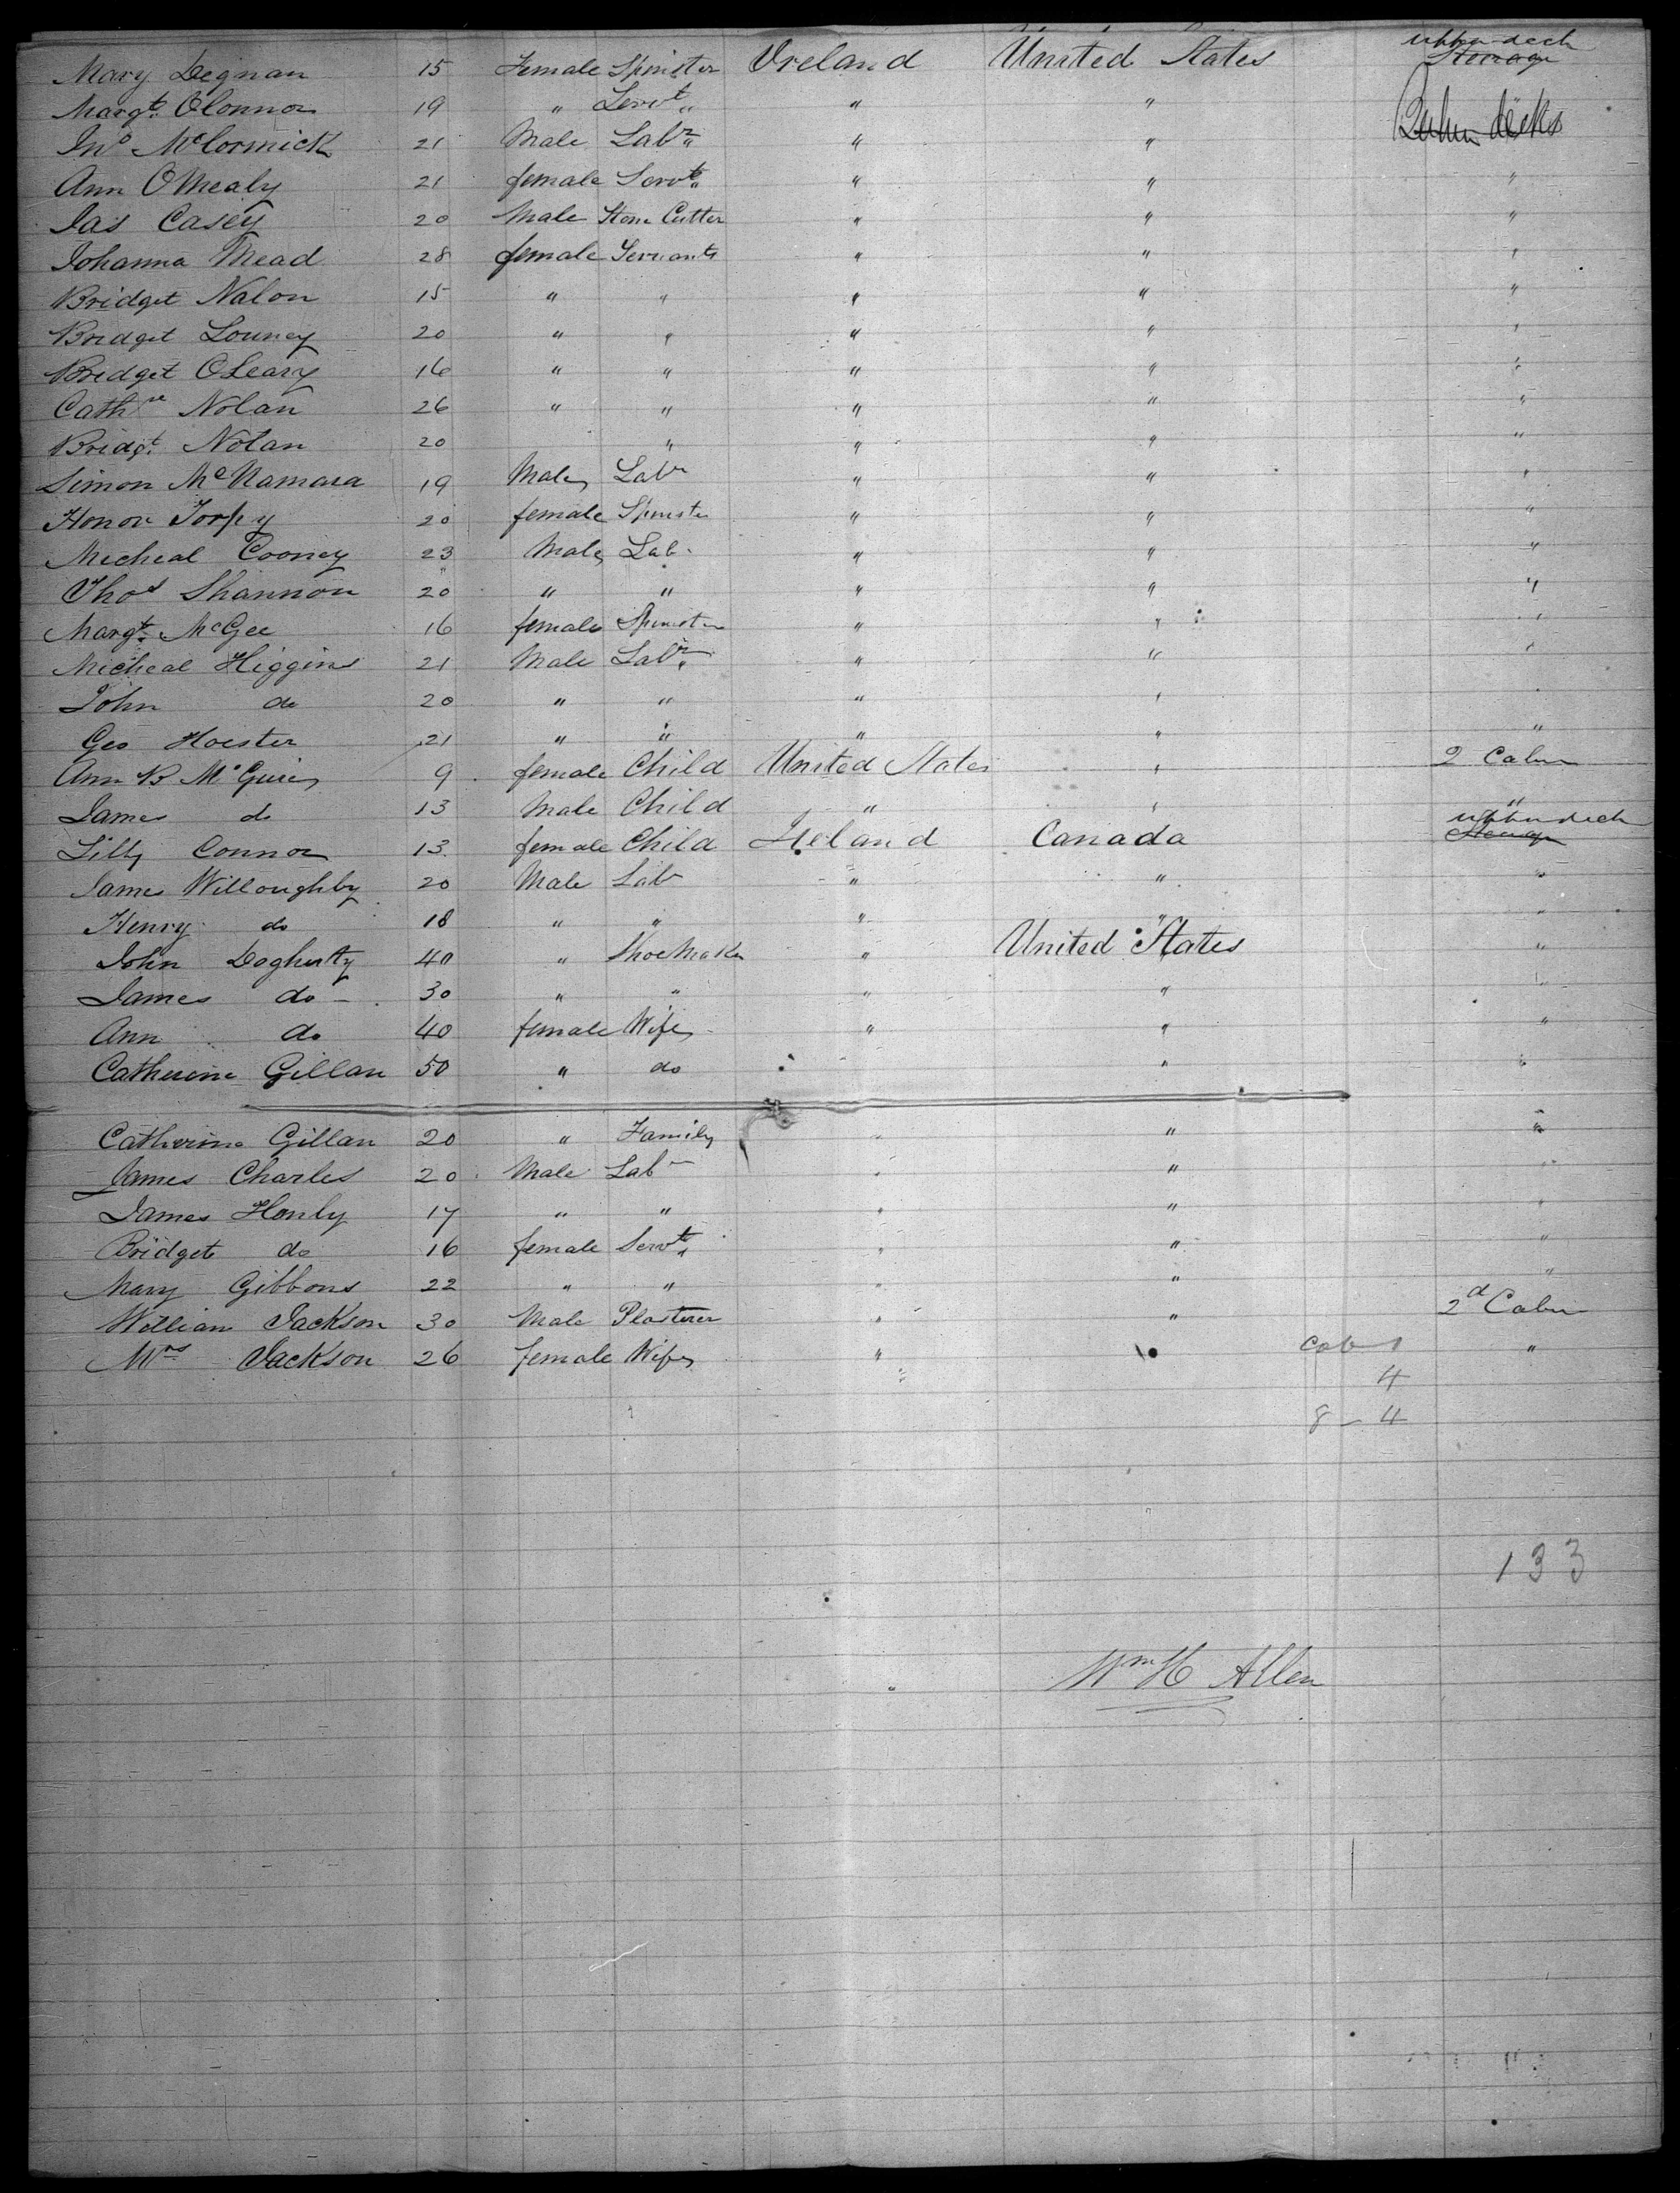 Mary Degnan 15 Female Spinster Ireland United States upper deck Steerage
Margt. OConnor 19 " Servt " " "
Jno McCormick 21 Male Labr " " decks
Ann OMealy 21 female Servt " " "
Jas Casey 20 Male Stone Cutter " " "
Johanna Mead 28 female Servants " " "
Bridget Nalon 15 " " " " "
Bridget Louney 20 " " " " "
Bridget OLeary 16 " " " " "
Cathne Nolan 26 " " " " "
Bridgt. Nolan 20 " " " "
Simon McNamara 19 Male Labr " " "
Honor Torpy 20 female Spinster " " "
Micheal Cooney 23 Male Lab. " " "
Thos Shannon 20 " " " " "
Margt. McGee 16 female Spinster " " "
Micheal Higgins 21 Male Labr. " " "
John do 20 " " " " "
Geo Hoester 21 " " " " "
Ann B McGuire 9 female Child United States " 2 Cabin
James do 13 Male Child " " "
Lilly Connor 13 female Child Ireland Canada upper deck Steerage
James Willoughby 20 Male Lab " " "
Henry do 18 " " " " "
John Dogherty 40 " Shoe Maker " United States "
James do 30 " " " " "
Ann do 40 female Wife " " "
Catherine Gillan 50 " do " " "
Catherine Gillan 20 " Family " " "
James Charles 20 Male Labr " " "
James Honly 17 " " " " "
Bridget do 16 female Servt " " "
Mary Gibbons 22 " " " " "
William Jackson 30 Male Plasterer " " 2d Cabin
Mrs Jackson 26 female Wife " " Cab "
4
8 - 4
133
Wm H Allen